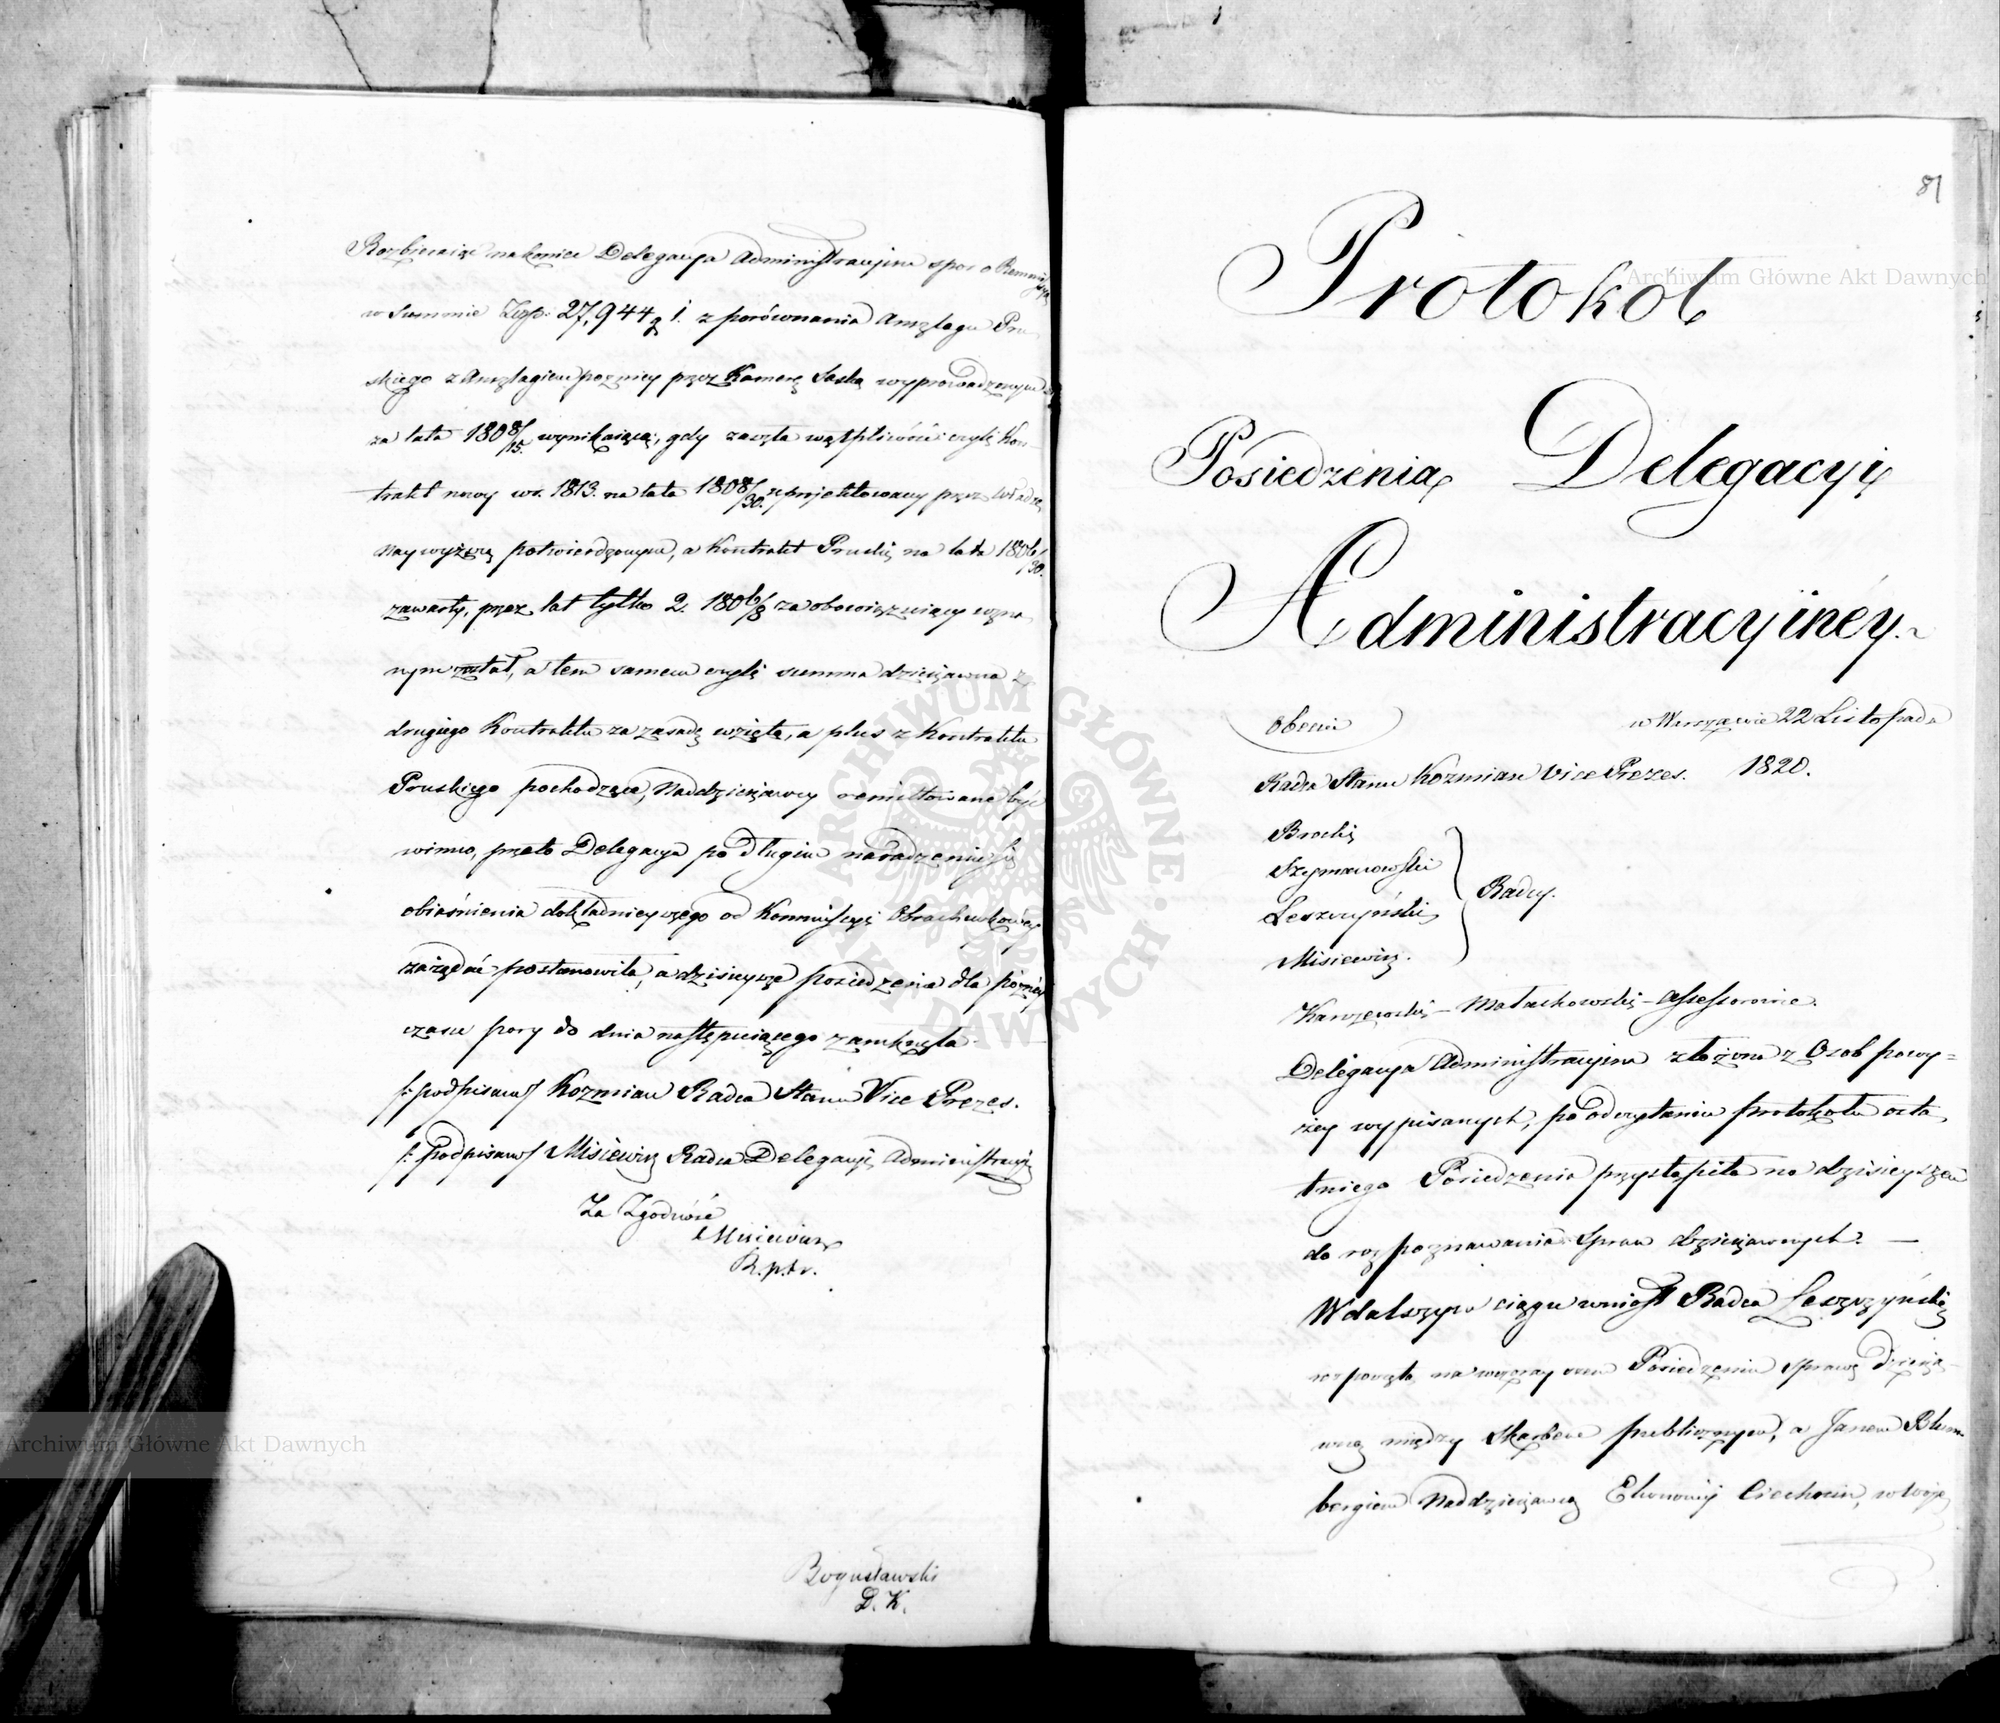 Rozbieraiąc nakoniec Delegacya Administracyina spor o Remmissyą
w Summie Złłp: 27,944 g 1. z porównania Anszlagu Pru
skiego z Anszlagiem pozniey przez Kamerę Saską wyprowadzonym
za lata 1808/15. wynikaiącą, gdy zaszła wątpliwość czyli Kon
trakt nowy w r. 1813. na lata 1808/30. zaprojektowany przez Władzę
naywyższą potwierdzonym, a Kontrakt Pruski na lata 1806/30.
zawarty, przez lat tylko 2. 1806/8 za obowiązuiący uzna
nym został, a tem samem czyli summa dzierżawna z
drugiego Kontraktu za zasadę wzięta, a plus z Kontraktu
Pruskiego pochodzące, Naddzierżawcy remittowane być
winno, przeto Delegacya po długiem naradzeniu się
obiaśnienia dokładnieyszego od Kommissyi Obrachunkowey
zażądać postanowiła, a dzisieysze posiedzenie dla późney
czasu pory do dnia następuiącego zamknęła
/: podpisano/ Kozmian Radca Stanu Vice Prezes.
/: Podpisano/ Misiewicz Radca Delegacyi Administracyi
Za Zgodność
Misiewicz
R. p. tr.
Bogusławski
D. K.
81
Protokół
Posiedzenia Delegacyi
Administracyiney.
Obecni
w Warszawie 22 Listopada
1820.
Radca Stanu Kozmian Vice Prezes.
Brocki
Szymanowski
Leszczyński
Misiewicz.
Radcy.
Karczewski – Małachowski – Assessorowie.
Delegacya Administracyina złożona z Osob powy=
żey wypisanych, po odczytaniu protokołu osta
tniego Posiedzenia przystąpiła na dzisieyszem
do rozpoznawania Spraw dzierżawnych. —
W dalszym ciągu wniósł Radca Leszczyński
rozpoczętą na wczorayszem Posiedzeniu sprawę dzierża-
wną między Skarbem publicznym, a Janem Blum
bergiem Naddzierżawcą Ekonomij Ciechocin, w Woje
Archiwum Główne Akt Dawnych
Archiwum Główne Akt Dawnych
ARCHIWUM GŁÓWNE AKT DAWNYCH